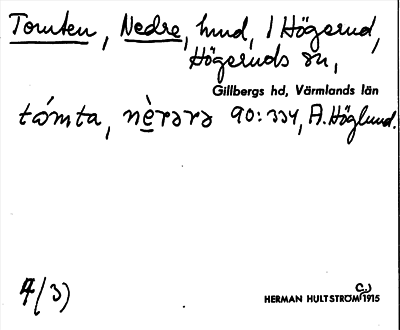 Tomten, Nedre, hmd, 1 Högerud,
Högeruds sn,
Gillbergs hd, Värmlands län
tómta, nèrərə 90:334, A. Höglund.
4/(3)
HERMAN HULTSTRÖM (C.) 1915